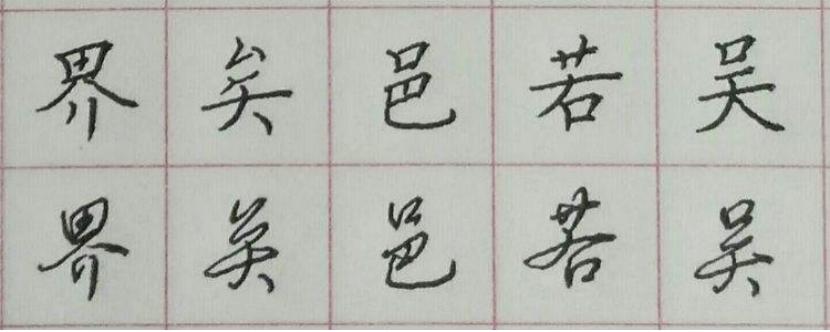 界矣邑若吴
界矣邑若吴